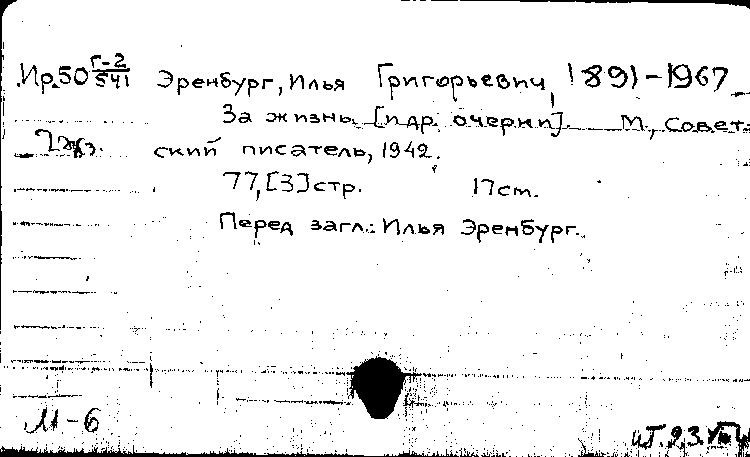 Ир.50 Г-2/541 Эренбург, Илья Григорьевич, 1891-1967
За жизнь. [и др. очерки]. М., Совет-
2 экз. ский писатель, 1942.
77,[3]стр. 17см.
Перед загл.: Илья Эренбург.
М-6